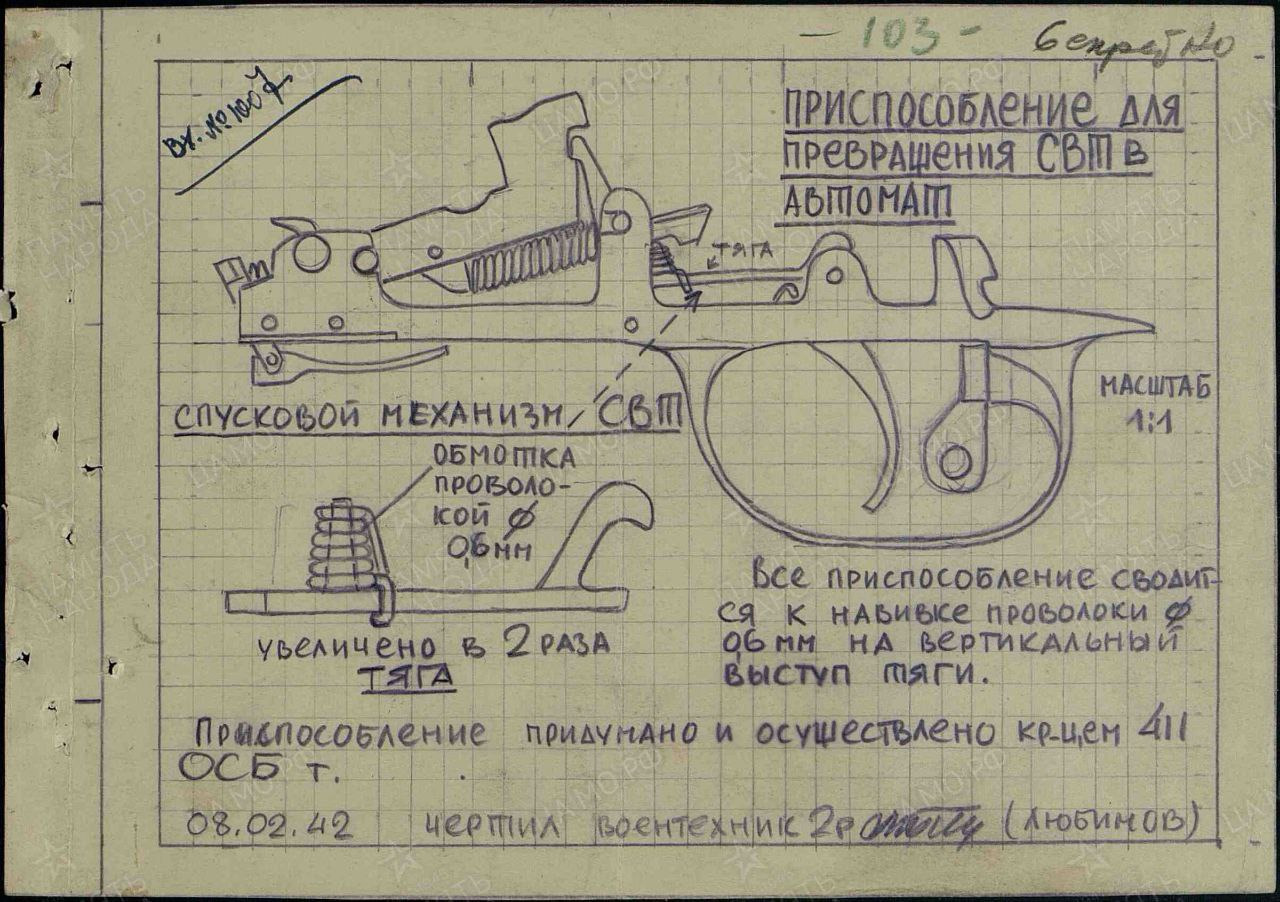 - 103 -
Вх. № 1007
ПРИСПОСОБЛЕНИЕ ДЛЯ
ПРЕВРАЩЕНИЯ СВТ В
АВТОМАТ
ТЯГА
МАСШТАБ
1:1
СПУСКОВОЙ МЕХАНИЗМ СВТ
ОБМОТКА
ПРОВОЛО-
КОЙ ϕ
0,6 мм
УВЕЛИЧЕНО В 2 РАЗА
ТЯГА
Все приспособление сводит-
ся к навивке проволоки ϕ
0,6 мм на вертикальный
выступ тяги.
Приспособление придумано и осуществлено кр-цем 411
ОСБ т.
08.02.42 чертил воентехник 2р (Любимов)
ПАМЯТЬ
НАРОДА
ЦАМО.РФ